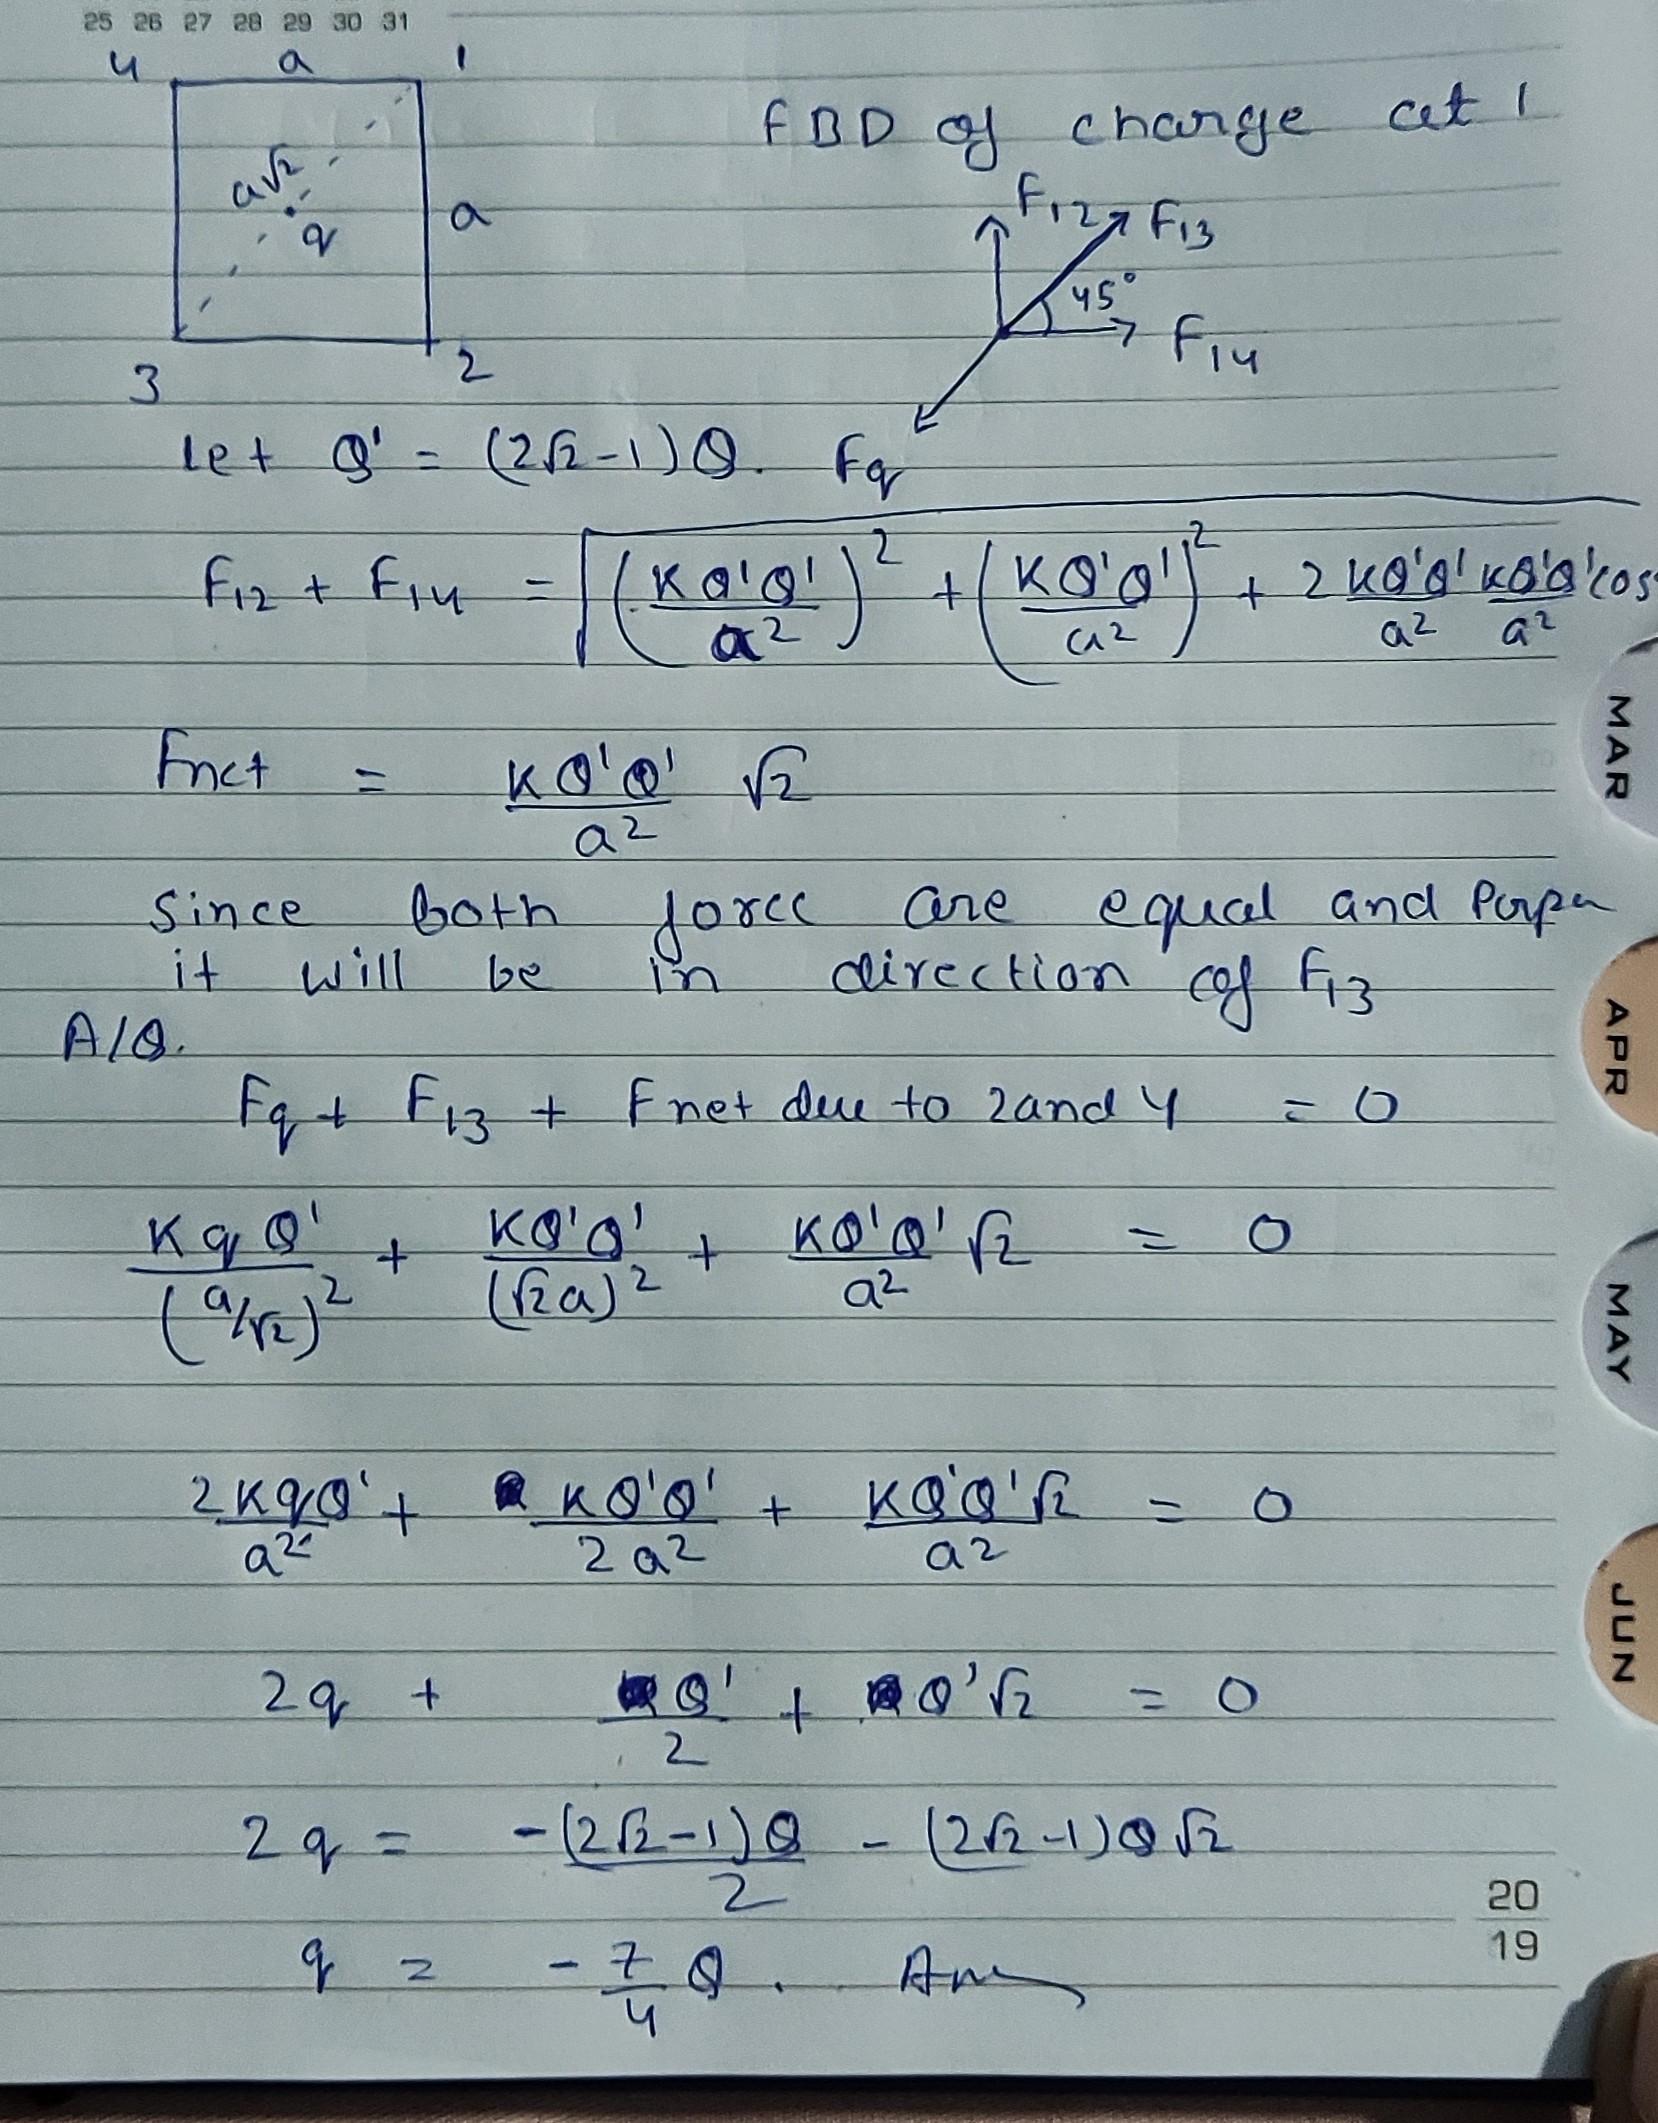 25 26 27 28 29 30 31
4 a 1
a√2
q
a
3 2
FBD of charge at 1
F₁₂ F₁₃
45°
F₁₄
Fq
let Q' = (2√2-1)Q.
F₁₂ + F₁₄ = √((KQ'Q'/a²)² + (KQ'Q'/a²)² + 2 KQ'Q'/a² KQ'Q'/a² cos
Fnet = KQ'Q'/a² √2
since both force are equal and
it will be in direction of F₁₃
A/Q.
Fq + F₁₃ + Fnet due to 2 and 4 = 0
KqQ'/(a/√2)² + KQ'Q'/(√2a)² + KQ'Q'/a² √2 = 0
2KqQ'/a² + KQ'Q'/2a² + KQ'Q'√2/a² = 0
2q + Q'/2 + Q'√2 = 0
2q = -(2√2-1)Q/2 - (2√2-1)Q√2
q = -7/4 Q. Ans
MAR
APR
MAY
JUN
20
19